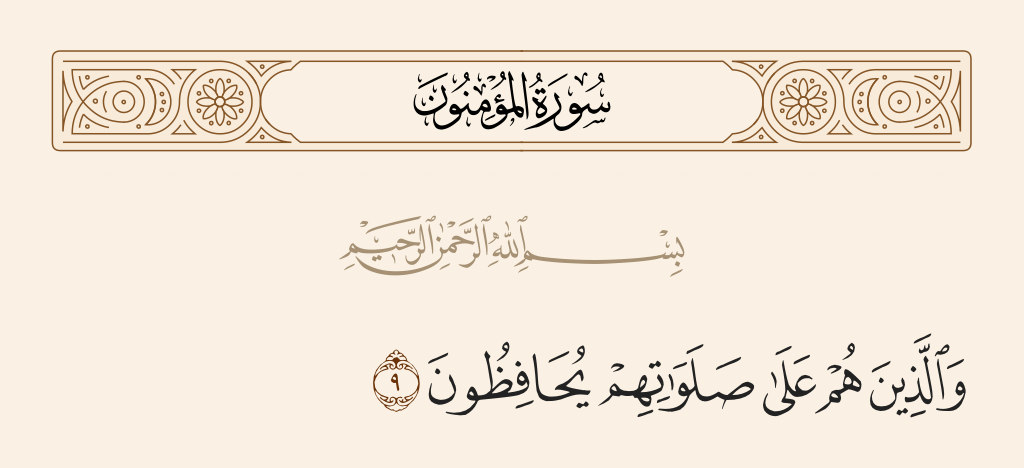 سُورَةُ الْمُؤْمِنُونَ
بِسْمِ ٱللَّهِ ٱلرَّحْمَٰنِ ٱلرَّحِيمِ
وَٱلَّذِينَ هُمْ عَلَىٰ صَلَوَٰتِهِمْ يُحَافِظُونَ ٩